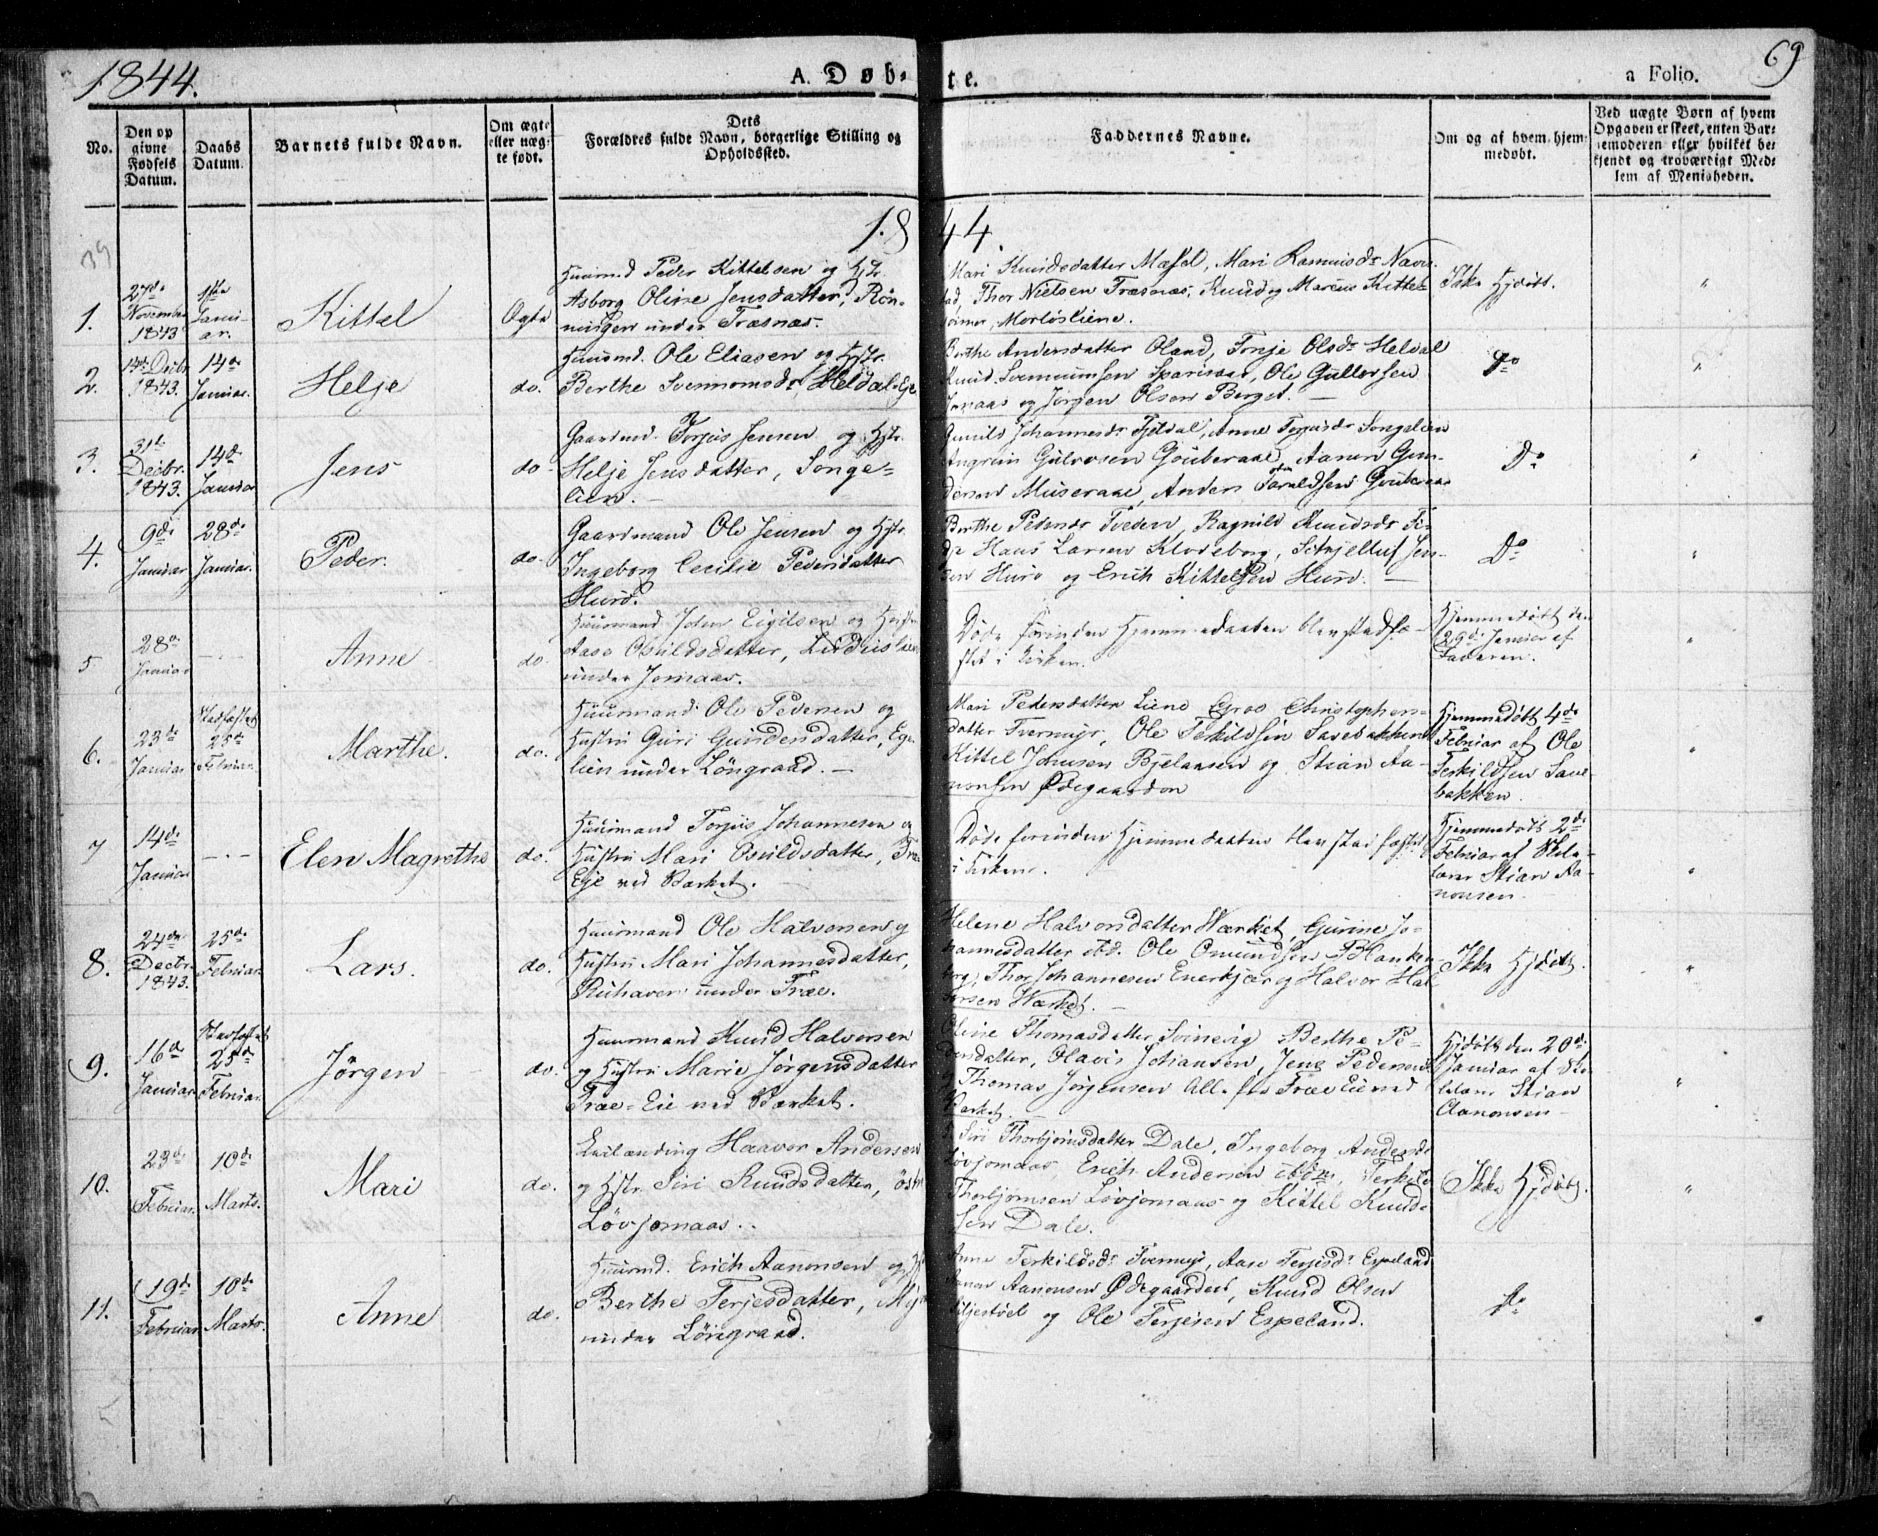 1844.
A. Døb-
te.
a Folio.
69
No.
Den op
givne
Fødsels
Datum.
Daabs
Datum.
Barnets fulde Navn.
Om ægte
eller uæg-
te født.
Dets
Forældres fulde Navn, borgerlige Stilling og
Opholdssted.
Faddernes Navne.
Om og af hvem hjem-
medøbt.
Ved uægte Børn af hvem
Opgaven er skeet, enten Bar-
nemoderen eller hvilket be-
kjendt og troværdigt Med-
lem af Menigheden.
18
44.
1.
27de
Novembr
1843
1ste
Janu-
ar.
Kittel
Ægte
Huusmd Peder Kittelsen og Hstr.
Asborg Oline Jensdatter, Røn-
ningen under Træsnæs.
Mari Knudsdatter
Mari Rasmusdr
Thor Nielsen Træsnæs, Knud og Marcus Kittel-
Ikke Hjdøbt.
2.
14de Decbr
1843.
14de
Januar.
Helje
do.
Huusmd. Ole Eliasen og Hstr.
Berthe
Heldal-Eye
Berthe Andersdatter Oland, Tonje Olsdr Heldal
Knud
Ole Gullovsen
og Jørgen Olsen Berget. —
Do
3.
31te
Decbr.
1843.
14de
Januar
Jens
do
Gaardmd. Torjus Jensen og Hstr.
Helje Jensdatter, Songe-
lien. —
Gunild Johannesdr Fjeldal, Anne Torjusdr Songelien
Gulovsen Goderaae, Aanon Gun-
dersen Museraae, Anders
Do
4.
9de
Januar
28de
Januar.
Peder.
do.
Gaardmand Ole Jensen og Hstr.
Ingeborg Cecilie Pedersdatter
Huro.
Berthe Pedersdr Tveden, Ragnild Knudsdr
Hans Larsen Klodeborg,
Jen-
sen Huro og Erich Kittelsen Huro. —
Do
5
28de
Januar
— . —
Anne
do.
Huusmand John Eigilsen og Hustru
Aase Osuldsdatter,
under Jomaas.
Døde forinden Hjemmedaaben blev stadfæ-
stet i Kirken.
Hjemmedøbt den
29de Januar af
Faderen.
6.
23de
Januar
Stadfæstet
25de
Februar.
Marthe.
do.
Huusmand Ole Pedersen og
Hustru Guri Gundersdatter, Ege-
lien under Løngraad. —
Mari Pedersdatter Liene Groe Christophers-
datter Tvermyr, Ole Terkildsen Savebakken
Kittel Johnsen Bjelaasen og Stian Aa-
nonsen Ødegaarden
Hjemmedøbt 4de
Februar af Ole
Terkildsen Save-
bakken.
7
14de
Januar
— . —
Elen Magrethe
do.
Huusmand Torjus Johannesen og
Hustru Mari Osuldsdatter, Træ
Eje ved Værket. —
Døde forinden Hjemmedaaben blev stadfæstet
i Kirken.
Hjemmedøbt 2de
Februar af Sko-
lelærer Stian Aa-
nonsen
8.
24de
Decbr.
1843.
25de
Februar
Lars.
do.
Huusmand Ole Halvorsen og
Hustru Mari Johannesdatter,
Ruhaven under Træe.
Helene Halvorsdatter Værket, Gurine Jo-
hannesdatter ibd. Ole Omundsen Blanken-
berg, Thor Johannesen Enerkjær og Halvor Hal-
vorsen Værket. —
Ikke Hjdøbt.
9.
16de
Januar
Stadfæstet
25de
Februar
Jørgen
do.
Huusmand Knud Halvorsen
og Hustru Marie Jørgensdatter
Træe-Eie ved Værket.
Oline Thomasdatter Svinevig Berthe Pe-
dersdatter, Olavis Johansen, Jens Pedersen
Thomas Jørgensen Alle fra Træe Eie ved
Værket. —
Hjdøbt den 20de
Januar af Sko-
lelærer Stian
Aanonsen
10.
23de
Februar
10de
Marts.
Mari
do.
Haavor Andersen
og Hstr. Siri Knudsdatter, Østre
Løvjomaas.
Siri Thorbjørnsdatter Dale, Ingeborg Andersdr
Løvjomaas Erich Andersen ibdm, Terkild
Thorbjørnsen Løvjomaas og Kittel Knud-
sen Dale.
Ikke Hjdøbt.
11.
19de
Februar
10de
Marts.
Anne
do.
Huusmd. Erich Aanonsen og Hst
Berthe Terjesdatter,
under Løngraad.
Anne Terkildsdr Tvermyr, Aase Terjesdr Espeland
Aanon Aanonsen Ødegaarden, Knud Olsen
og Ole Terjesen Espeland.
Do